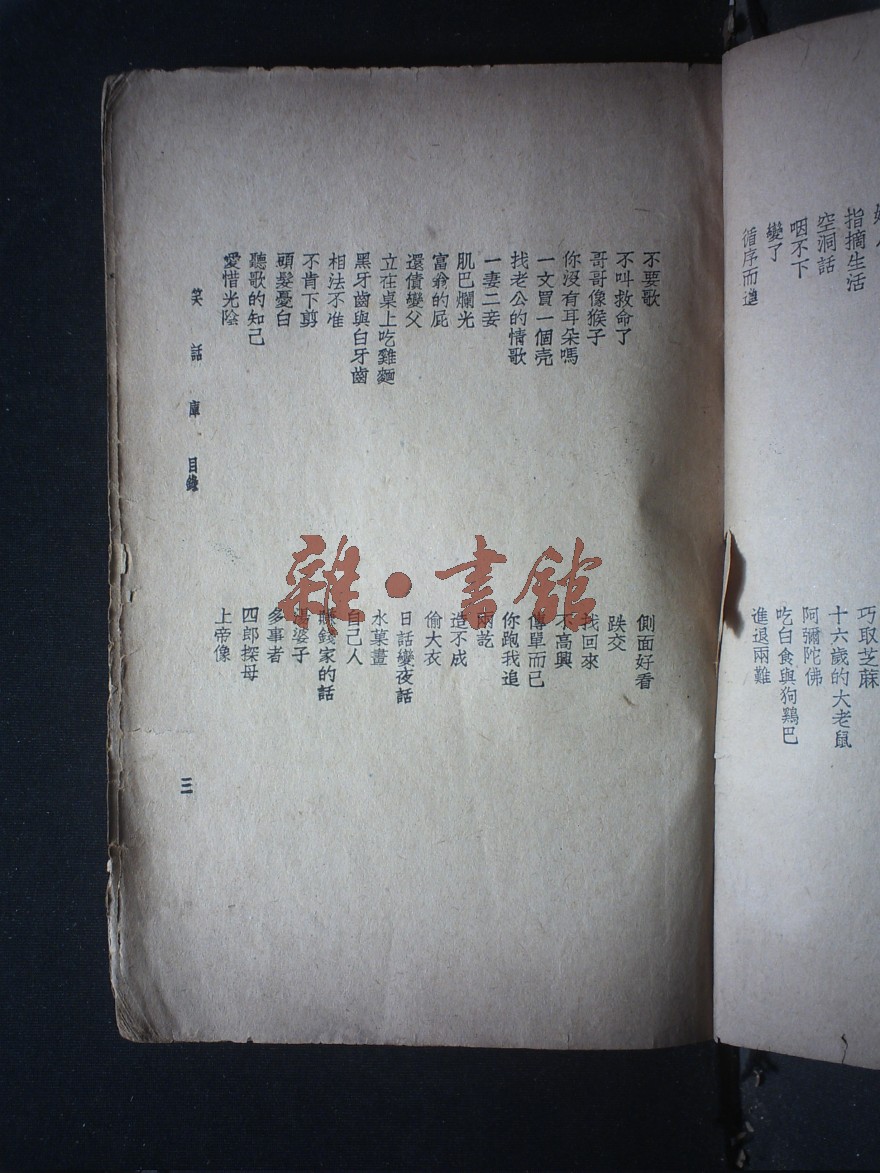 指摘生活
空洞話
咽不下
變了
循序而進
巧取芝蔴
十六歲的大老鼠
阿彌陀佛
吃白食與狗鷄巴
進退兩難
不要歌
不叫救命了
哥哥像猴子
你沒有耳朵嗎
一文買一個壳
找老公的情歌
一妻二妾
肌巴爛光
富翁的屁
還債變父
立在桌上吃雞麵
黑牙齒與白牙齒
相法不准
不肯下剪
頭髮憂白
聽歌的知己
愛惜光陰
側面好看
跌交
找回來
不高興
傳單而已
你跑我追
兩訖
造不成
偷大衣
日話變夜話
水菓畫
自己人
錢家的話
湯婆子
多事者
四郎探母
上帝像
笑話庫 目錄
三
雜·書館